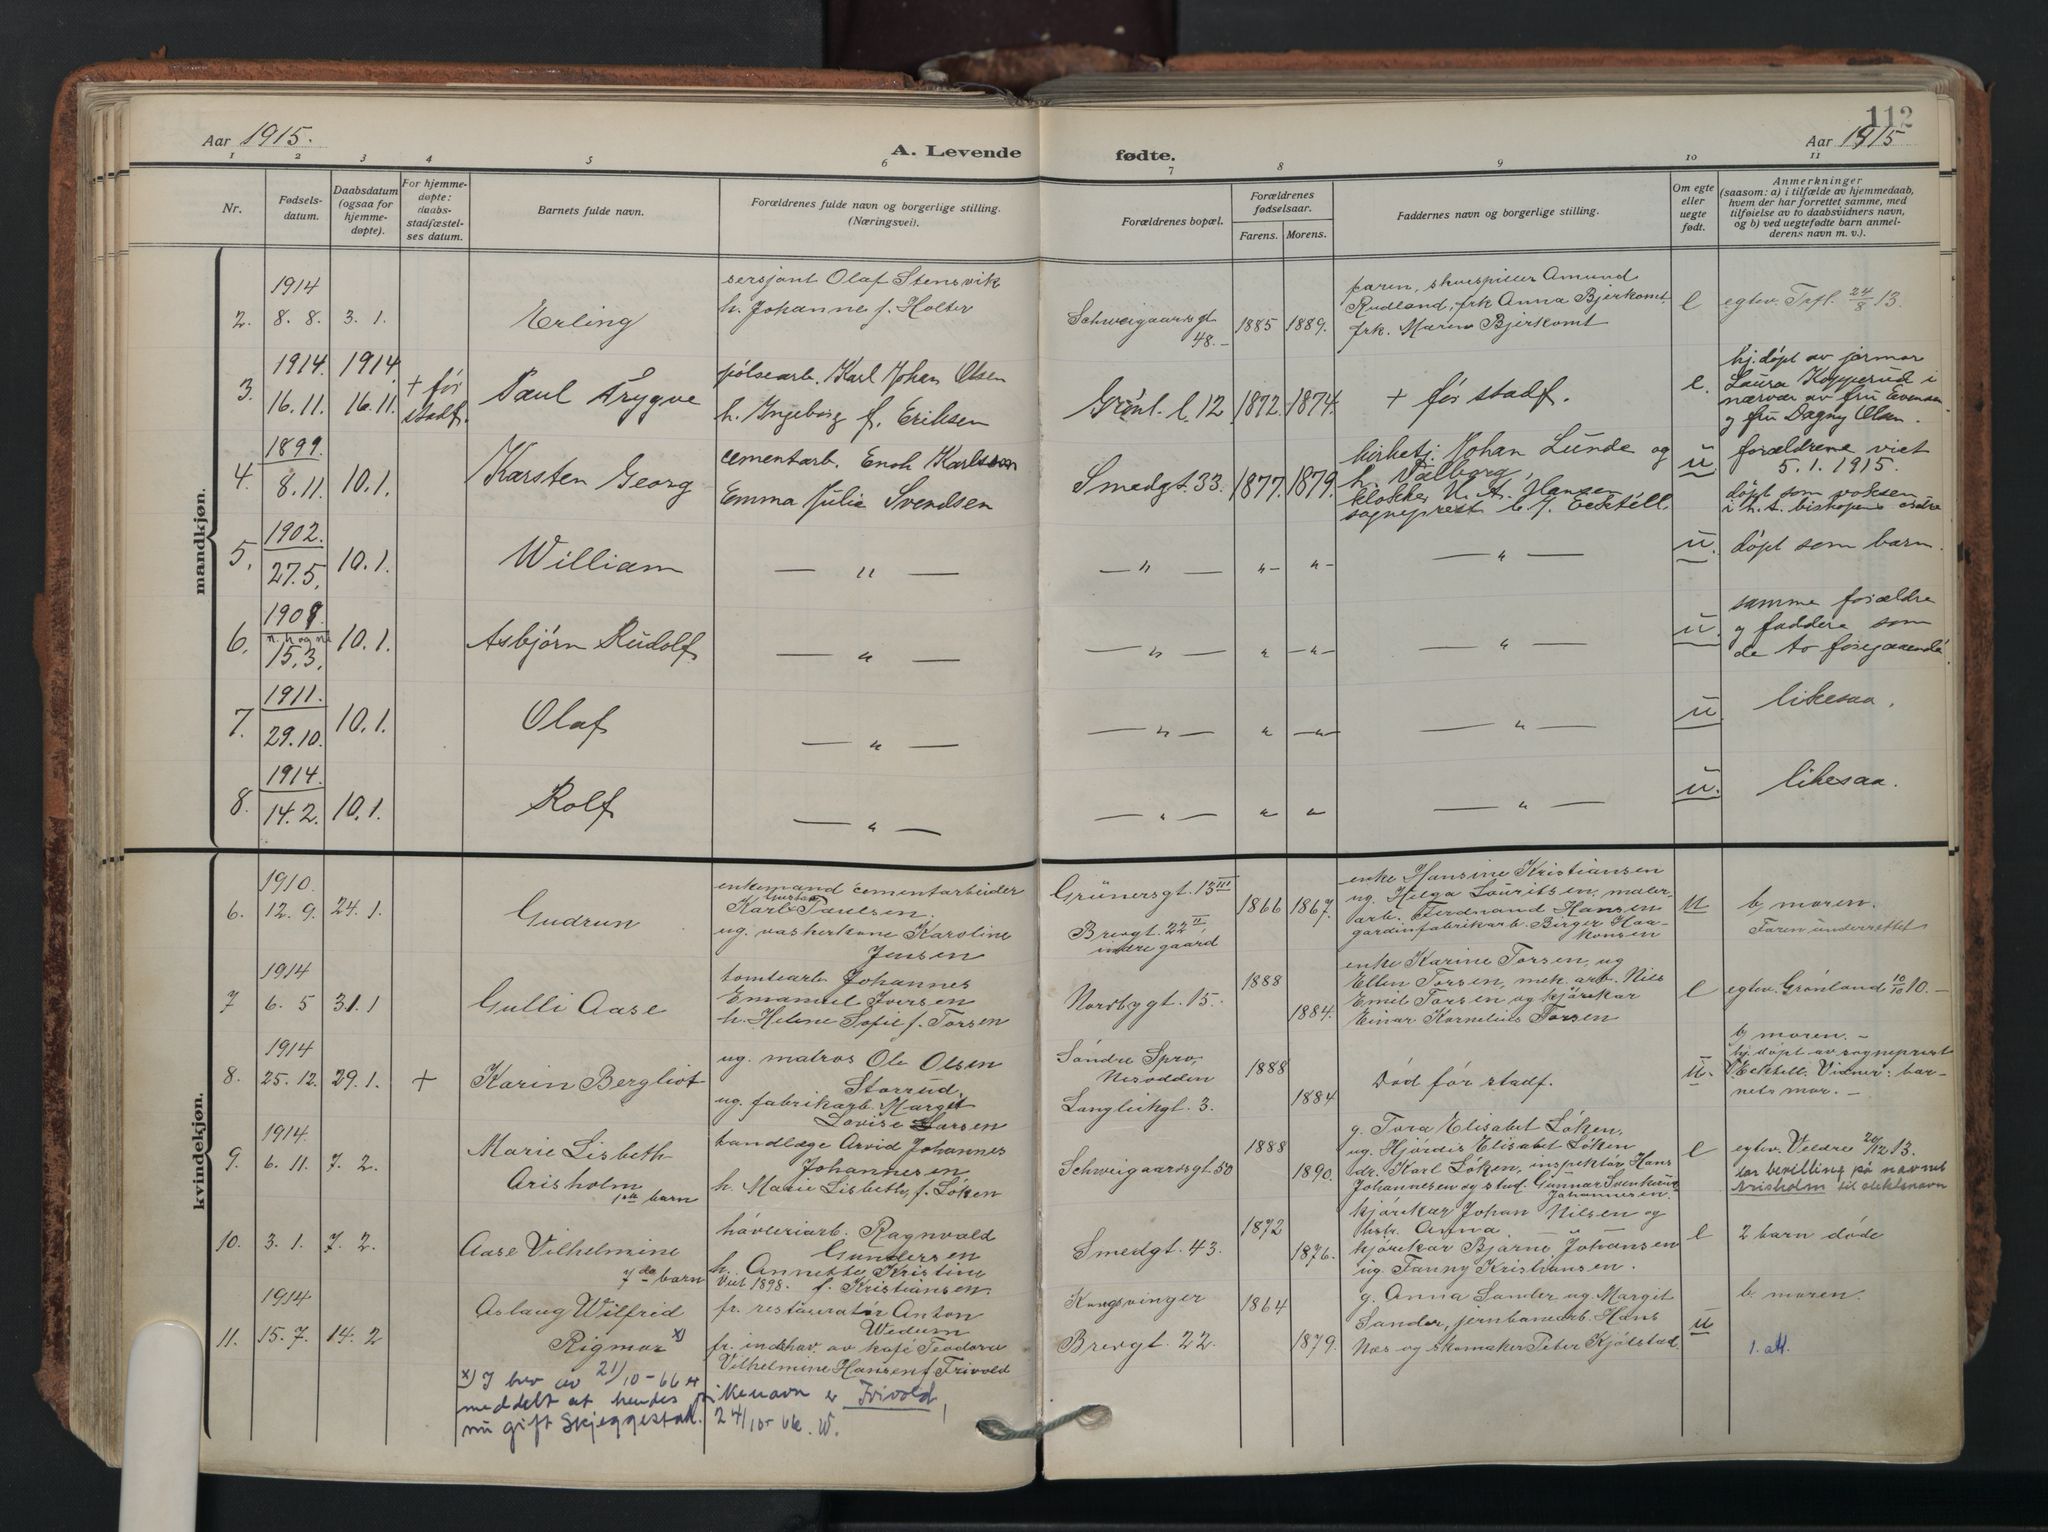 112
Aar 1915.
A. Levende fødte.
Aar 1915
1 2 3 4 5 6 7 8 9 10 11
Nr.
Fødsels-
datum.
Daabsdatum
(ogsaa for
hjemme-
døpte).
For hjemme-
døpte:
daabs-
stadfæstel-
ses datum.
Barnets fulde navn.
Forældrenes fulde navn og borgerlige stilling.
(Næringsvei).
Forældrenes bopæl.
Forældrenes
fødselsaar.
Farens. Morens.
Faddernes navn og borgerlige stilling.
Om egte
eller
uegte
født.
Anmerkninger
(saasom: a) i tilfælde av hjemmedaab,
hvem der har forrettet samme, med
tilføielse av to daabsvidners navn,
og b) ved uegtefødte barn anmel-
derens navn m. v.).
mandkjøn.
2.
1914
8. 8.
3. 1.
Erling
sersjant Olaf Stensvik
h. Johanne f. Holter
Schweigaardsgt
48.-
1885
1889.
faren, skuespiller Amund
Rudland, frk Anna Bjerkomt
frk. Maren Bjerkomt
e
egtev. Trfl. 24/8 13.
3.
1914.
16. 11.
1914
16. 11.
+ før
stadf.
Paul Trygve
pølsearb. Karl Johan Olsen
h. Ingeborg f. Eriksen
Grønl. l. 12
1872.
1874.
+ før stadf.
e.
hj. døpt av jormor
Laura Kopperud i
nærvær av fru Evensen
og fru Dagny Olsen.
4.
1899.
8. 11.
10. 1.
Karsten Georg
cementarb. Enok Karlsson
Emma Julie Svendsen
Smedgt. 33.
1877.
1879.
kirketj. Johan Lunde og
h. Valborg,
klokker H. A. Hansen
sogneprest C. J. Ecktell
u
forældrene viet
5. 1. 1915.
døpt som voksen
i h. t. bispens ordre
5.
1902.
27. 5.
10. 1.
William
— " —
— " —
" -
" -
— " —
u.
døpt som barn.
6.
1908.
15. 3.
10. 1.
Asbjørn Rudolf
— " —
— " —
"
- " -
— " —
u.
samme forældre
og faddere som
de to foregaaende.
7.
1911.
29. 10.
10. 1.
Olaf
— " —
— " —
"
- " -
— " —
u
likesaa.
8.
1914.
14. 2.
10. 1.
Rolf
— " —
— " —
"
"
— " —
u.
likesaa.
kvindekjøn.
6.
1910.
12. 9.
24. 1.
Gudrun
enkemand cementarbeider
Karl Gustav Paulsen.
ug. vaskerkone Karoline
Jensen
Grünersgt. 13 III
Brevgt. 22 II
indre gaard
1866
1867.
enke Hansine Kristiansen
ug. Helga Lauritsen, maler-
arb. Ferdinand Hansen
gardinfabrikarb. Birger Haa-
konsen
u
b, moren.
Faren underrettet
7
1914
6. 5
31. 1
Gulli Aase
tomtearb. Johannes
Emanuel Iversen
h. Helene Sofie f. Torsen
Nordbygt. 15.
1888
1884.
enke Karine Torsen, ug
Ellen Torsen, mek. arb. Nils
Emil Torsen og kjørekar
Einar Kornelius Torsen
e
egtev. Grønland 10/10 10.-
8.
1914
25. 12.
29. 1.
+
Karin Bergliot
ug. matros Ole Olsen
Storrud,
ug. fabrikarb. Margit
Lovise Larsen
Søndre Spro,
Nesodden
Langleikgt. 3.
1888
1884
Død før stadf.
u.
b, moren. -
hj. døpt av sogneprest
Ecktell. Vidner: bar-
nets mor. -
9.
1914.
6. 11.
7. 2.
Marie Lisbeth
Arisholm
1ste barn
tandlæge Arvid Johannes
Johannesen
h. Marie Lisbeth, f. Løken
Schweigaardsgt. 50
1888
1890.
g. Tora Elisabet Løken,
ug. Hjørdis Elisabet Løken
dr. Karl Løken, inspektør Hans
Johannesen og stud. Gunnar
Johannesen.
e
egtev. Veldre 20/12 13.
har bevilling på navnet
Arisholm til slektsnavn
10.
3. 1.
7. 2.
Aase Vilhelmine
7de barn
høveriarb. Ragnvald
Gundersen
h. Annette Kristine
Viet 1898. f. Kristiansen
Smedgt. 43.
1872
1876.
kjørekar Johan Nilsen og
hstr. Anna
kjørekar Bjarne Johansen
ug. Fanny Kristiansen.
e
2 barn døde
11.
1914
15. 7.
14. 2
Aslaug Wilfrid
Rigmor x)
fr. restauratør Anton
Wedum
fr. indehav. av kafé Teodora
Vilhelmine Hansen f. Frivold
Kongsvinger
Brevgt. 22.
1864
1879.
g. Anna Sander ug. Margit
Sander, jernbanearb. Hans
Næs og skomaker Peter Kjølstad.
u
b. moren.
1. att.
x) I brev av 21/10-66 er
meddelt at hendes pikenavn er Frivold,
nu gift Skjeggestad. 24/10-66. W.